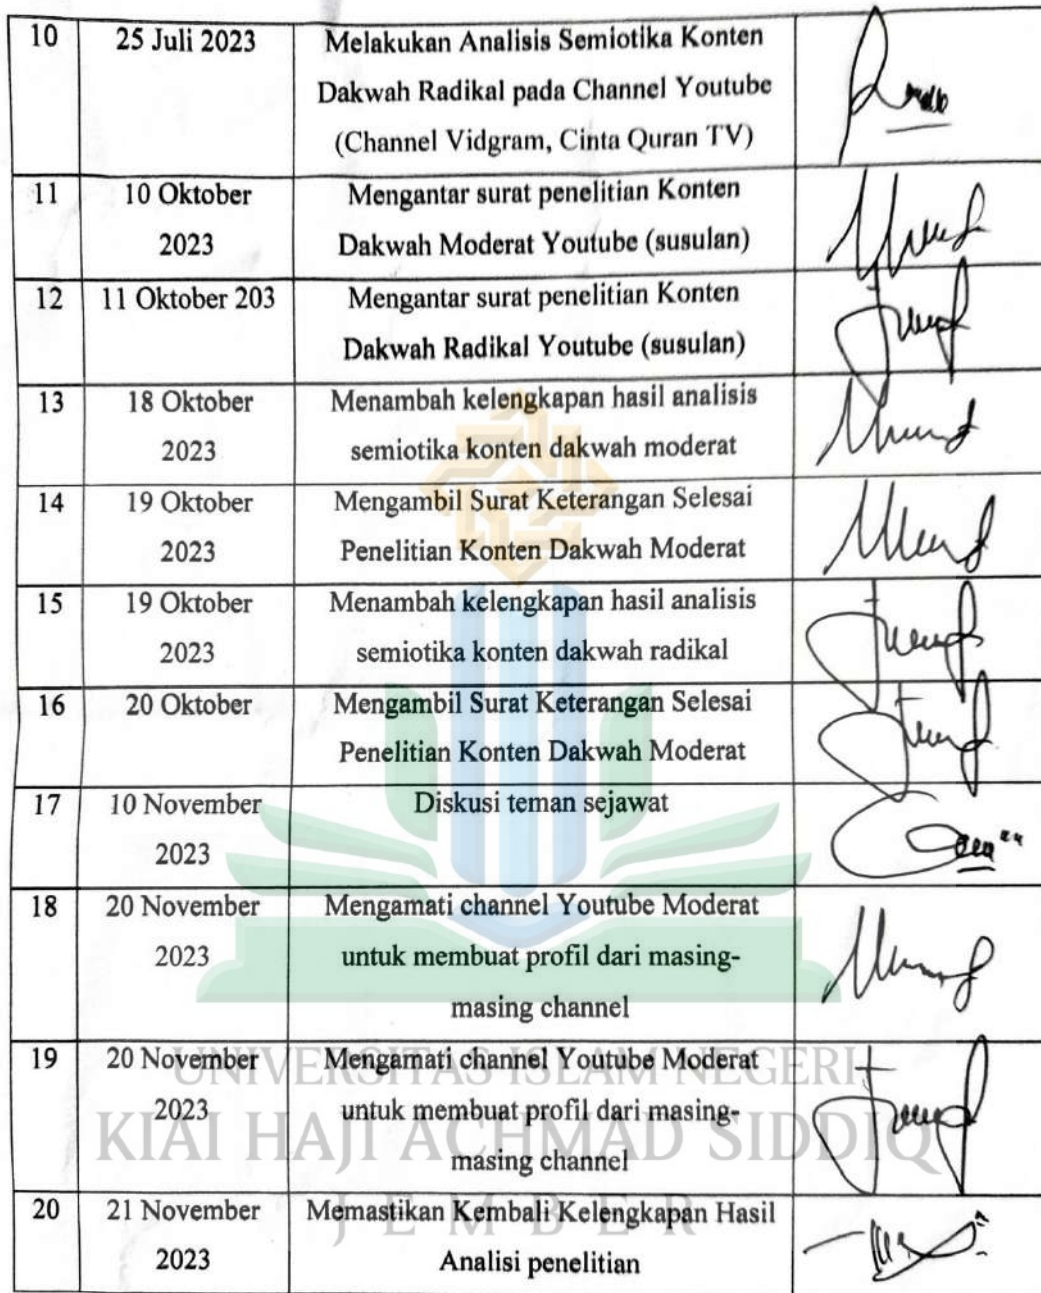 10 25 Juli 2023 Melakukan Analisis Semiotika Konten
Dakwah Radikal pada Channel Youtube
(Channel Vidgram, Cinta Quran TV)
11 10 Oktober Mengantar surat penelitian Konten
2023 Dakwah Moderat Youtube (susulan)
12 11 Oktober 203 Mengantar surat penelitian Konten
Dakwah Radikal Youtube (susulan)
13 18 Oktober Menambah kelengkapan hasil analisis
2023 semiotika konten dakwah moderat
14 19 Oktober Mengambil Surat Keterangan Selesai
2023 Penelitian Konten Dakwah Moderat
15 19 Oktober Menambah kelengkapan hasil analisis
2023 semiotika konten dakwah radikal
16 20 Oktober Mengambil Surat Keterangan Selesai
Penelitian Konten Dakwah Moderat
17 10 November Diskusi teman sejawat
2023
18 20 November Mengamati channel Youtube Moderat
2023 untuk membuat profil dari masing-
masing channel
19 20 November Mengamati channel Youtube Moderat
2023 untuk membuat profil dari masing-
masing channel
20 21 November Memastikan Kembali Kelengkapan Hasil
2023 Analisi penelitian
UNIVERSITAS ISLAM NEGERI
KIAI HAJI ACHMAD SIDDIQ
JEMBER